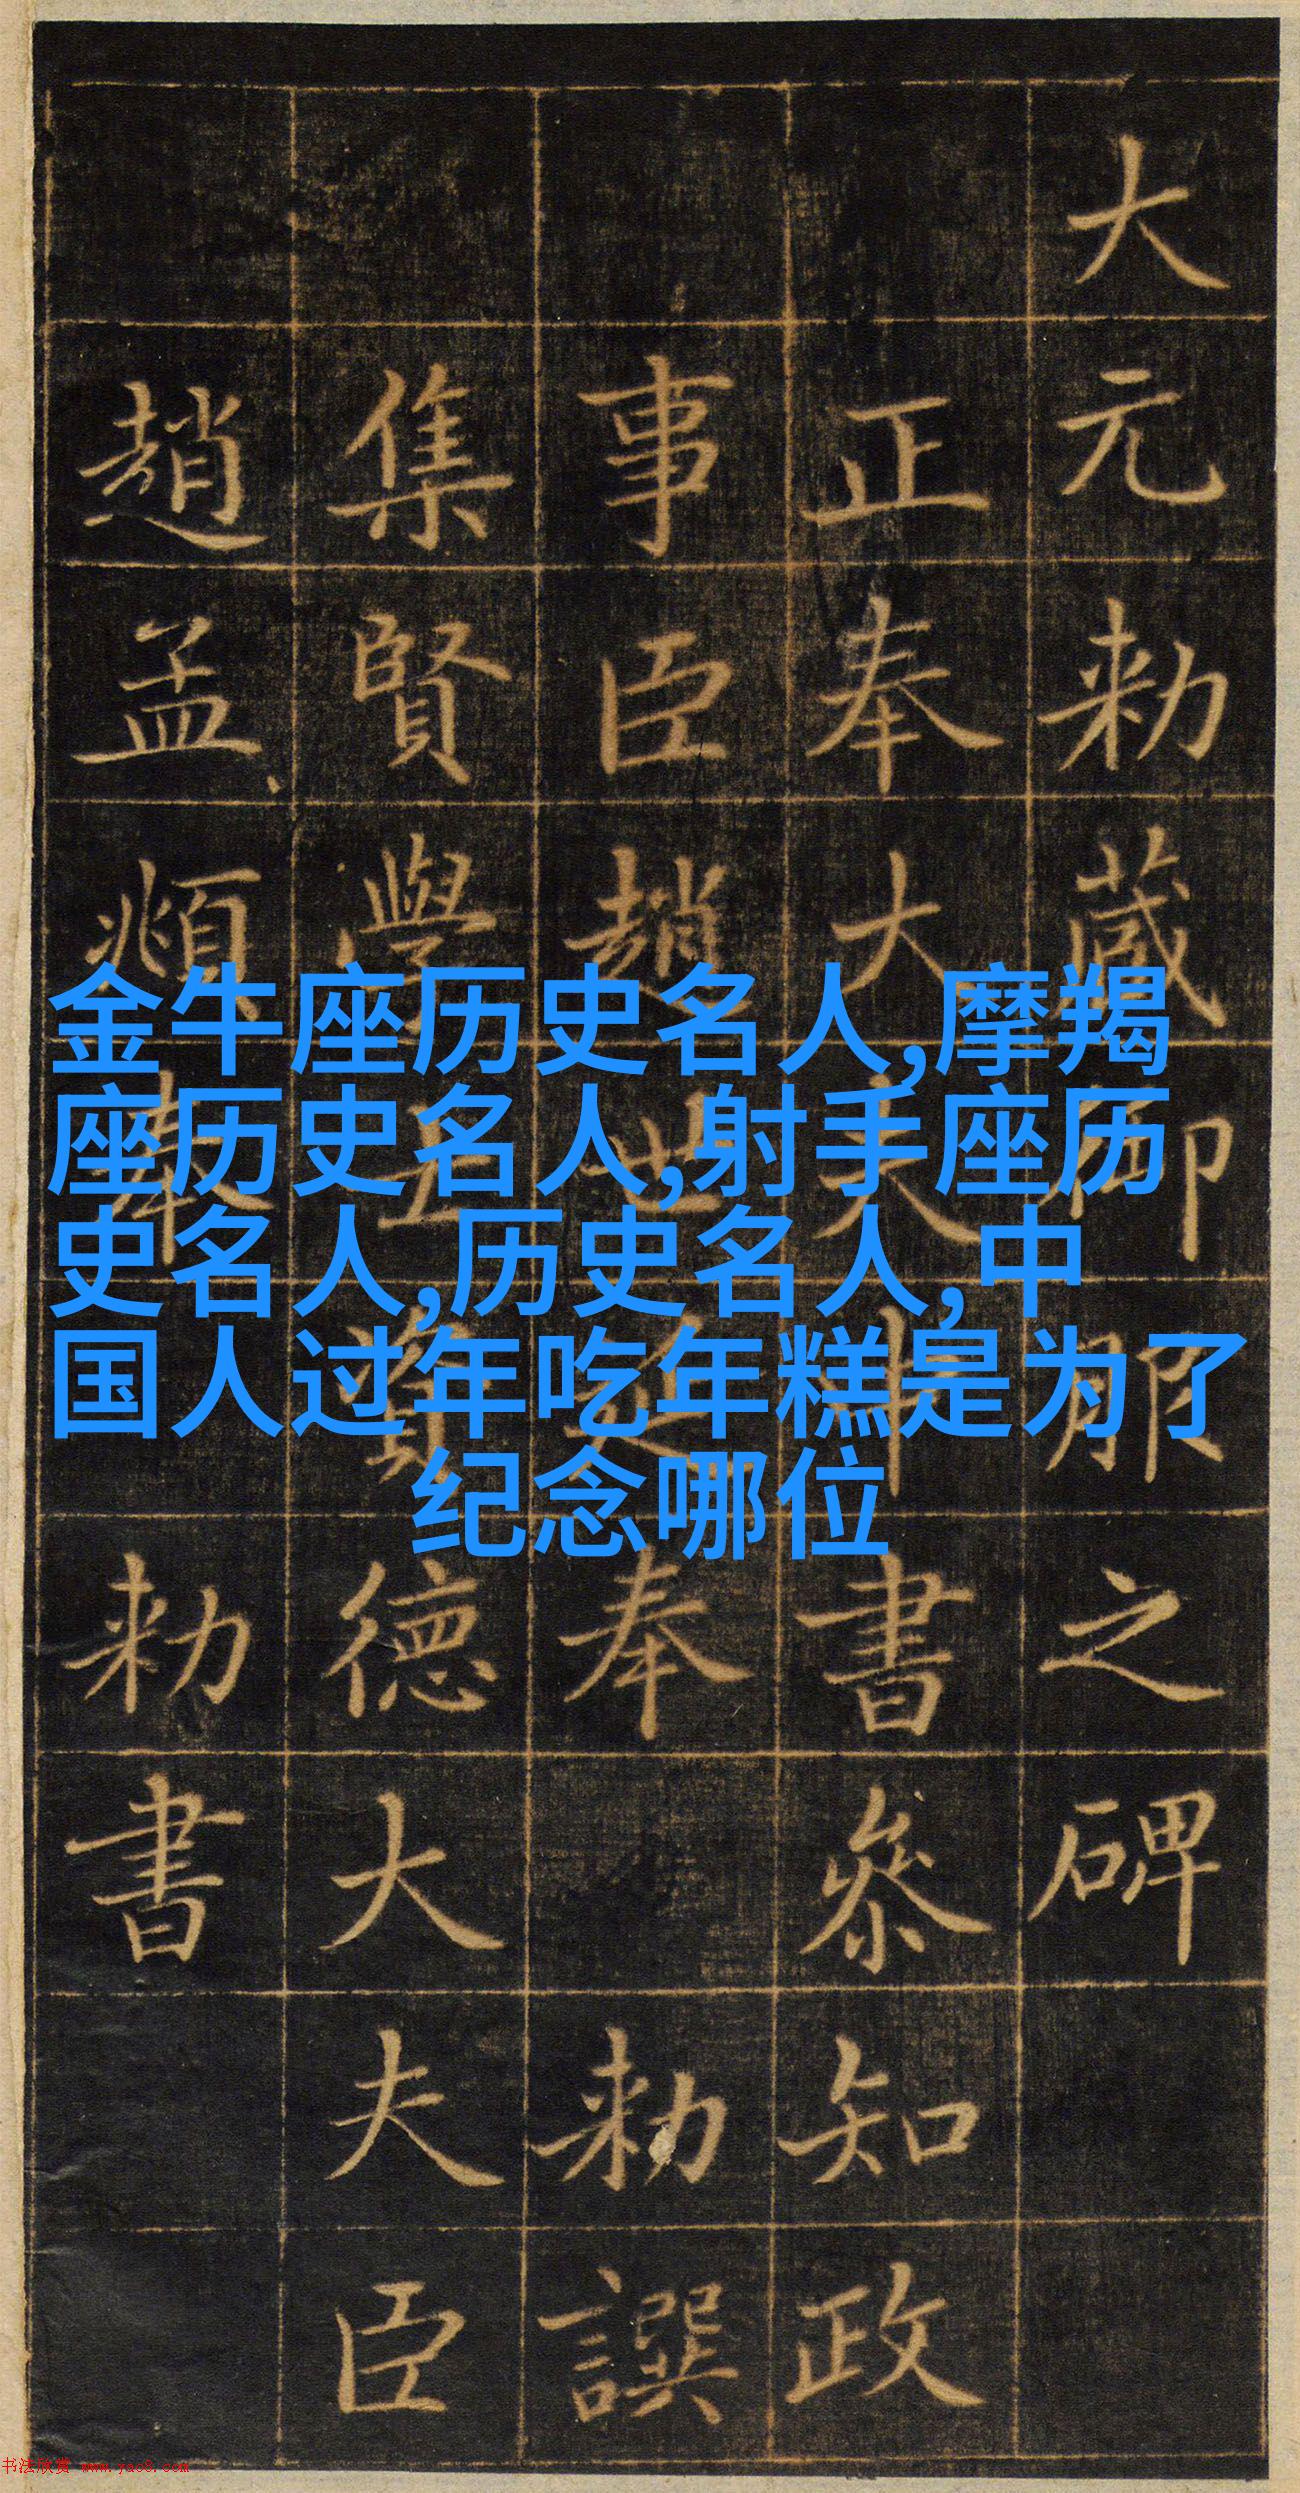 大元勑藏御服之碑
正奉大夫中書叅知政
事臣趙世延奉勑譔
集賢學士資德大夫臣
趙孟頫奉勑書
金牛座历史名人,摩羯
座历史名人,射手座历
史名人,历史名人,中
国人过年吃年糕是为了
纪念哪位
书法欣赏 www.yac8.com